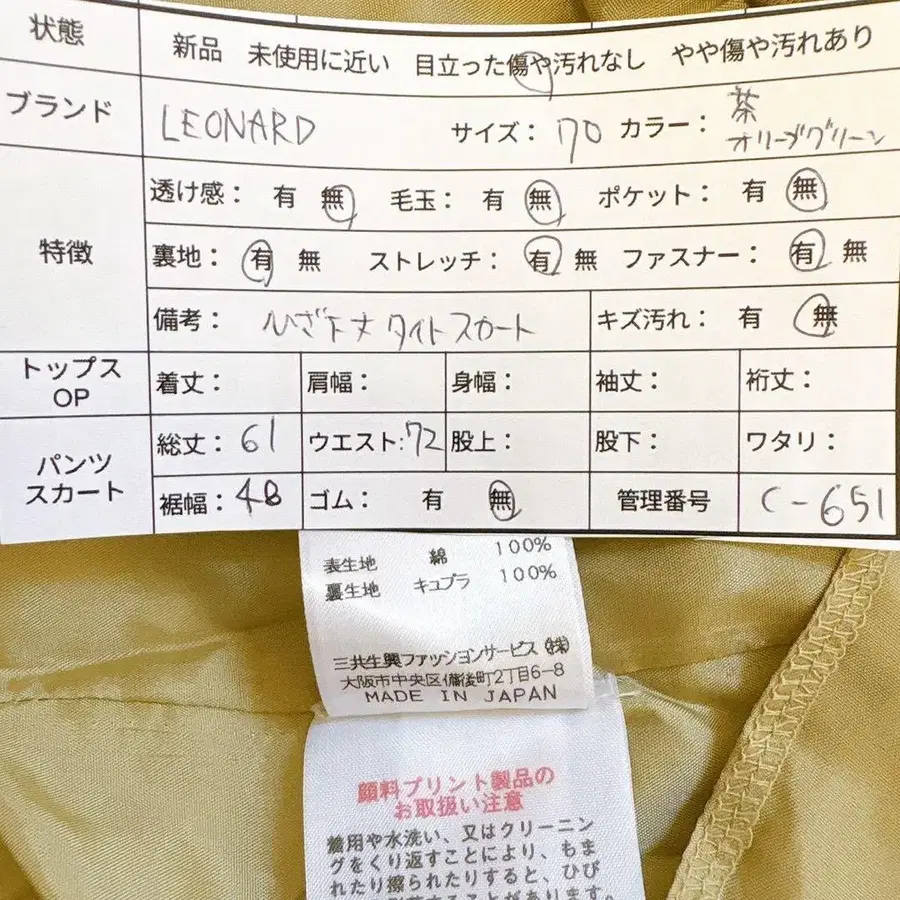 状態 新品 未使用に近い 目立った傷や汚れなし やや傷や汚れあり
ブランド LEONARD サイズ: 70 カラー: 茶
オリーブグリーン
特徴
透け感: 有 無 毛玉: 有 無 ポケット: 有 無
裏地: 有 無 ストレッチ: 有 無 ファスナー: 有 無
備考: ひざ下丈タイトスカート キズ汚れ: 有 無
トップス
OP
着丈: 肩幅: 身幅: 袖丈: 裄丈:
パンツ
スカート
総丈: 61 ウエスト: 72 股上: 股下: ワタリ:
裾幅: 48 ゴム: 有 無 管理番号 C-651
表生地 綿 100%
裏生地 キュプラ 100%
三共生興ファッションサービス(株)
大阪市中央区備後町2丁目6-8
MADE IN JAPAN
顔料プリント製品の
お取扱い注意
着用や水洗い、又はクリーニン
グをくり返すことにより、もま
れたり擦られたりすると、ひび